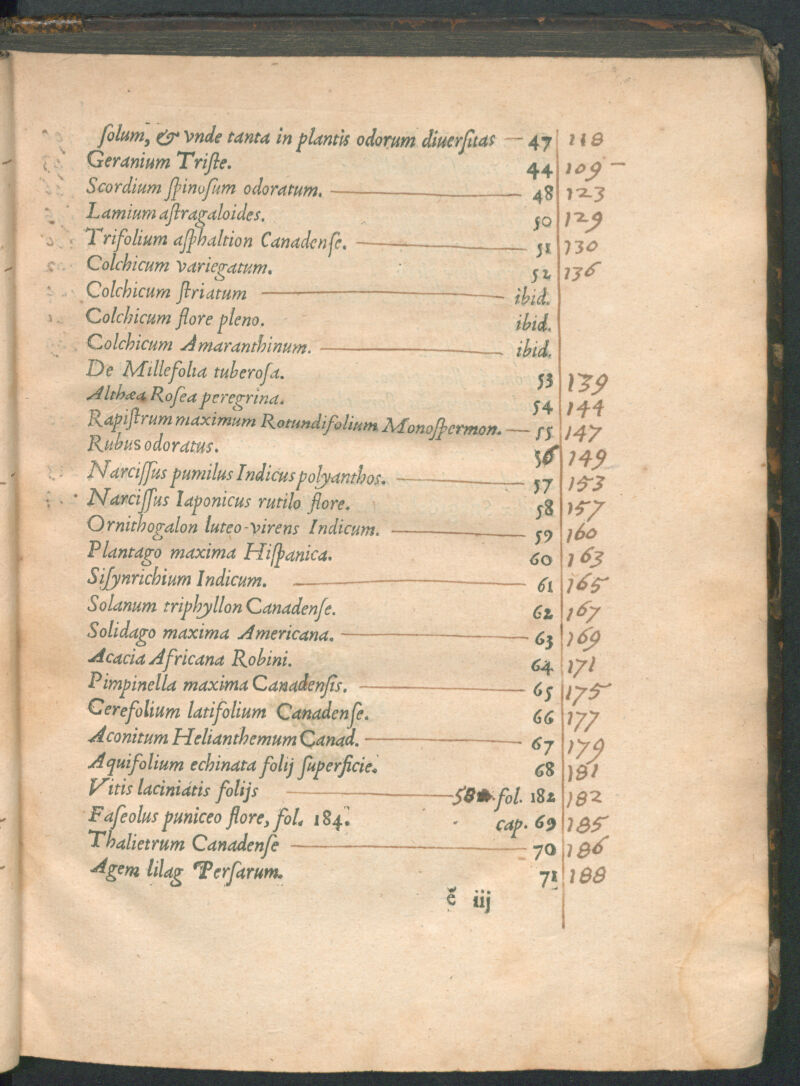 ſolum, & vnde tanta in plantis odorum diuerſitas — 47 118
Geranium Triſte. 44 109 –
Scordium ſpinoſum odoratum. — 48 123
Lamium aſtragaloides. 50 129
Trifolium aſphaltion Canadenſe. — 51 130
Colchicum variegatum. 52 136
Colchicum ſtriatum — ibid.
Colchicum flore pleno. ibid.
Colchicum Amaranthinum. — ibid.
De Millefolia tuberoſa. 53 139
Althæa Roſea peregrina. 54 144
Rapiſtrum maximum Rotundifolium Monoſpermon. — 55 147
Rubus odoratus. 56 149
Narciſſus pumilus Indicus polyanthos. — 57 153
Narciſſus Iaponicus rutilo flore. 58 157
Ornithogalon luteo-virens Indicum. — 59 160
Plantago maxima Hiſpanica. 60 163
Siſynrichium Indicum. — 61 165
Solanum triphyllon Canadenſe. 62 167
Solidago maxima Americana. — 63 169
Acacia Africana Robini. 64 171
Pimpinella maxima Canadenſis. — 65 175
Cerefolium latifolium Canadenſe. 66 177
Aconitum Helianthemum Canad. — 67 179
Aquifolium echinata folij ſuperficie. 68 181
Vitis laciniatis folijs — fol. 182 182
Faſeolus puniceo flore, fol. 184. cap. 69 185
Thalietrum Canadenſe — 70 186
Agem lilag Perſarum. 71 188
ẽ iij